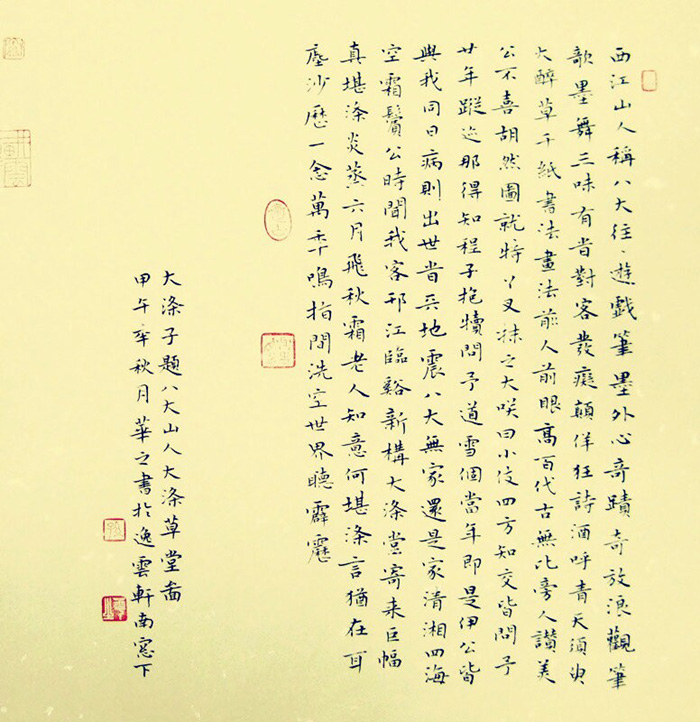 西江山人稱八大往〻遊戲筆墨外心奇蹟奇放浪觀筆
歌墨舞三昧有昔對客發癡顛佯狂詩酒呼青天須臾
大醉草千紙書法畫法前人前眼高百代古無比旁人讚美
公不喜胡然圖就特丫叉抹之大咲曰小伎四方知交皆問予
廿年蹤迹那得知程子抱犢問予道雪個當年即是伊公皆
與我同日病則出世昔兵地震八大無家還是家清湘四海
空霜鬢公時聞我客邗江臨谿新構大滌堂寄来巨幅
真堪滌炎蒸六月飛秋霜老人知意何堪滌言猶在耳
塵沙歷一念萬年鳴指間洗空世界聽霹靂
大滌子題八大山人大滌草堂啚
甲午年秋月華之書於逸雲軒南窓下